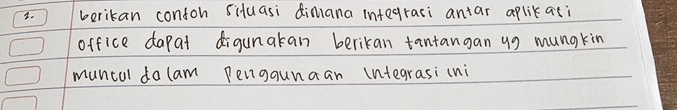 2. berikan contoh situasi dimana integrasi antar aplikasi
office dapat digunakan berikan tantangan yg mungkin
muncul dalam Penggunaan integrasi ini